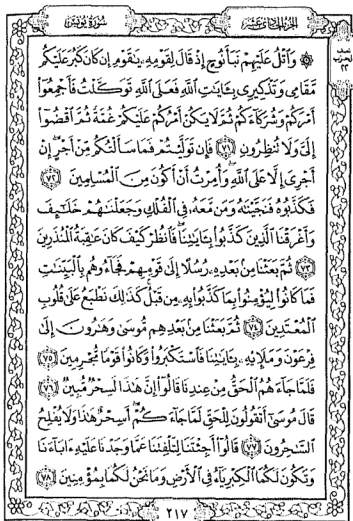 الجزء الحادي عشر
سورة يونس
نصف الحزب ٢٢
۞ وَٱتْلُ عَلَيْهِمْ نَبَأَ نُوحٍ إِذْ قَالَ لِقَوْمِهِۦ يَٰقَوْمِ إِن كَانَ كَبُرَ عَلَيْكُم
مَّقَامِى وَتَذْكِيرِى بِـَٔايَٰتِ ٱللَّهِ فَعَلَى ٱللَّهِ تَوَكَّلْتُ فَأَجْمِعُوٓا۟
أَمْرَكُمْ وَشُرَكَآءَكُمْ ثُمَّ لَا يَكُنْ أَمْرُكُمْ عَلَيْكُمْ غُمَّةً ثُمَّ ٱقْضُوٓا۟
إِلَىَّ وَلَا تُنظِرُونِ ﴿٧١﴾ فَإِن تَوَلَّيْتُمْ فَمَا سَأَلْتُكُم مِّنْ أَجْرٍ إِنْ
أَجْرِىَ إِلَّا عَلَى ٱللَّهِ وَأُمِرْتُ أَنْ أَكُونَ مِنَ ٱلْمُسْلِمِينَ ﴿٧٢﴾
فَكَذَّبُوهُ فَنَجَّيْنَٰهُ وَمَن مَّعَهُۥ فِى ٱلْفُلْكِ وَجَعَلْنَٰهُمْ خَلَٰٓئِفَ
وَأَغْرَقْنَا ٱلَّذِينَ كَذَّبُوا۟ بِـَٔايَٰتِنَا فَٱنظُرْ كَيْفَ كَانَ عَٰقِبَةُ ٱلْمُنذَرِينَ
﴿٧٣﴾ ثُمَّ بَعَثْنَا مِنۢ بَعْدِهِۦ رُسُلًا إِلَىٰ قَوْمِهِمْ فَجَآءُوهُم بِٱلْبَيِّنَٰتِ
فَمَا كَانُوا۟ لِيُؤْمِنُوا۟ بِمَا كَذَّبُوا۟ بِهِۦ مِن قَبْلُ كَذَٰلِكَ نَطْبَعُ عَلَىٰ قُلُوبِ
ٱلْمُعْتَدِينَ ﴿٧٤﴾ ثُمَّ بَعَثْنَا مِنۢ بَعْدِهِم مُّوسَىٰ وَهَٰرُونَ إِلَىٰ
فِرْعَوْنَ وَمَلَإِي۟هِۦ بِـَٔايَٰتِنَا فَٱسْتَكْبَرُوا۟ وَكَانُوا۟ قَوْمًا مُّجْرِمِينَ ﴿٧٥﴾
فَلَمَّا جَآءَهُمُ ٱلْحَقُّ مِنْ عِندِنَا قَالُوٓا۟ إِنَّ هَٰذَا لَسِحْرٌ مُّبِينٌ ﴿٧٦﴾
قَالَ مُوسَىٰٓ أَتَقُولُونَ لِلْحَقِّ لَمَّا جَآءَكُمْ أَسِحْرٌ هَٰذَا وَلَا يُفْلِحُ
ٱلسَّٰحِرُونَ ﴿٧٧﴾ قَالُوٓا۟ أَجِئْتَنَا لِتَلْفِتَنَا عَمَّا وَجَدْنَا عَلَيْهِ ءَابَآءَنَا
وَتَكُونَ لَكُمَا ٱلْكِبْرِيَآءُ فِى ٱلْأَرْضِ وَمَا نَحْنُ لَكُمَا بِمُؤْمِنِينَ ﴿٧٨﴾
٢١٧